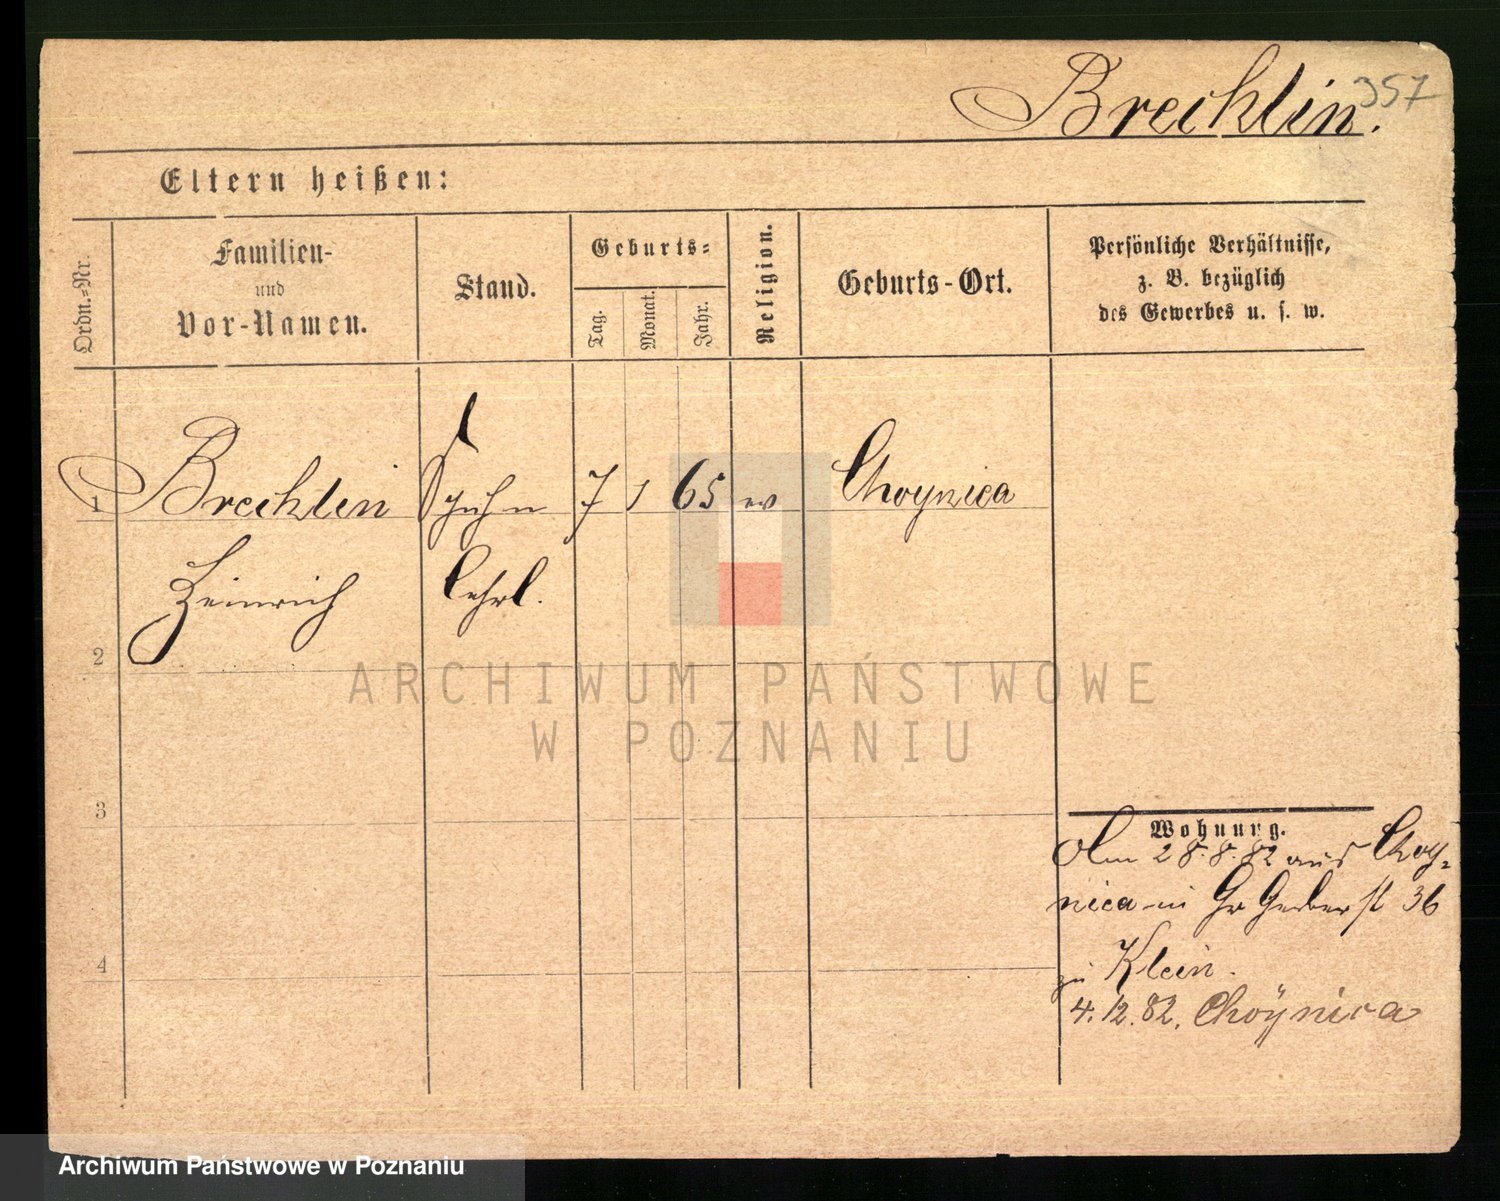 Brechlin.
357
Eltern heißen:
Ordn.-Nr.
Familien-
und
Vor-Namen.
Stand.
Geburts-
Tag.
Monat.
Jahr.
Religion.
Geburts-Ort.
Persönliche Verhältnisse,
z. B. bezüglich
des Gewerbes u. s. w.
1 Brechlin 7 1 65 ev Choynica
Heinrich Lehrl.
2
3
4
Wohnung.
28.8.82 aus Choy-
nica in Gr Gerberst 36
zu Klein.
4.12.82. Choynica
ARCHIWUM PAŃSTWOWE
W POZNANIU
Archiwum Państwowe w Poznaniu